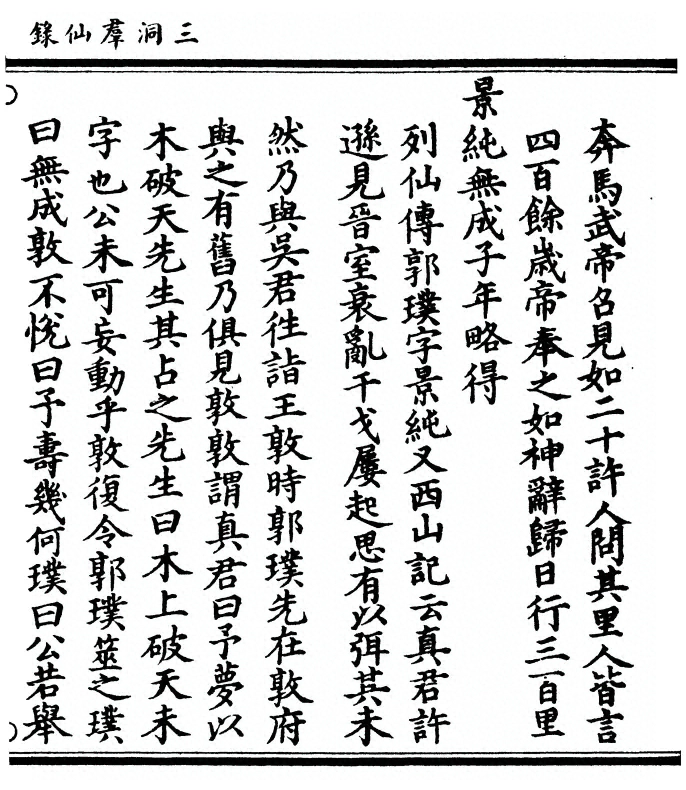 三洞羣仙錄
奔馬武帝召見如二十許人問其里人皆言
四百餘歲帝奉之如神辭歸日行三百里
景純無成子年略得
列仙傳郭璞字景純又西山記云真君許
遜見晉室衰亂干戈屢起思有以弭其未
然乃與吳君徃詣王敦時郭璞先在敦府
與之有舊乃俱見敦敦謂真君曰予夢以
木破天先生其占之先生曰木上破天未
字也公未可妄動乎敦復令郭璞筮之璞
曰無成敦不悅曰予壽幾何璞曰公若舉